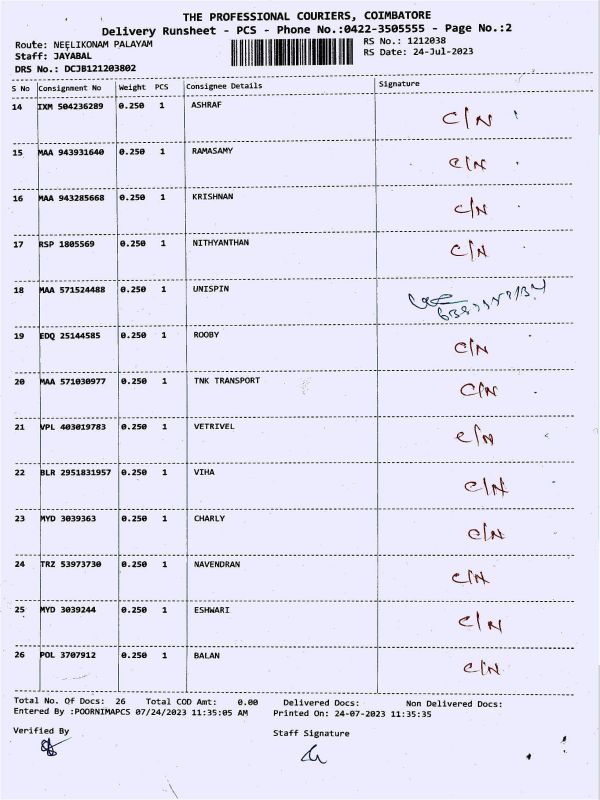 THE PROFESSIONAL COURIERS, COIMBATORE
Delivery Runsheet - PCS - Phone No.:0422-3505555 - Page No.:2
Route: NEELIKONAM PALAYAM RS No.: 1212038
Staff: JAYABAL RS Date: 24-Jul-2023
DRS No.: DCJB121203802
S No Consignment No Weight PCS Consignee Details Signature
14 IXM 504236289 0.250 1 ASHRAF C/N
15 MAA 943931640 0.250 1 RAMASAMY C/N
16 MAA 943285668 0.250 1 KRISHNAN C/N
17 RSP 1805569 0.250 1 NITHYANTHAN C/N
18 MAA 571524488 0.250 1 UNISPIN
19 EDQ 25144585 0.250 1 ROOBY C/N
20 MAA 571030977 0.250 1 TNK TRANSPORT C/N
21 VPL 403019783 0.250 1 VETRIVEL C/N
22 BLR 2951831957 0.250 1 VIHA C/N
23 MYD 3039363 0.250 1 CHARLY C/N
24 TRZ 53973730 0.250 1 NAVENDRAN C/N
25 MYD 3039244 0.250 1 ESHWARI C/N
26 POL 3707912 0.250 1 BALAN C/N
Total No. Of Docs: 26 Total COD Amt: 0.00 Delivered Docs: Non Delivered Docs:
Entered By :POORNIMAPCS 07/24/2023 11:35:05 AM Printed On: 24-07-2023 11:35:35
Verified By Staff Signature